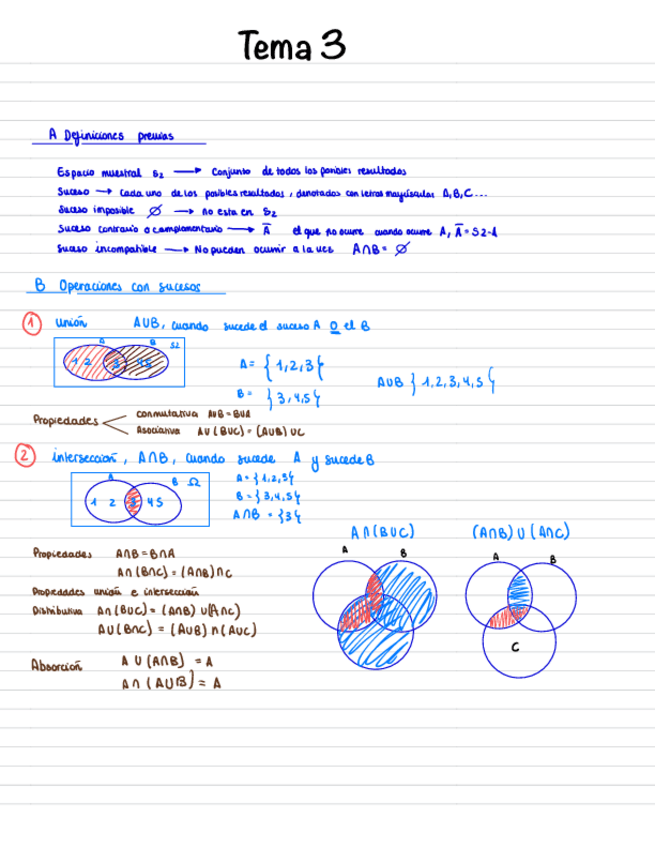 Tema 3
A Definiciones previas
Espacio muestral Ω → Conjunto de todos los posibles resultados
Suceso → Cada uno de los posibles resultados, denotados con letras mayúsculas A, B, C...
Suceso imposible ∅ → no esta en Ω
Suceso contrario o complementario → Ā el que no ocurre cuando ocurre A, Ā = Ω-A
Suceso incompatible → No pueden ocurrir a la vez A∩B = ∅
B Operaciones con sucesos
1 unión A∪B, cuando sucede el suceso A O el B
A B Ω
1 2 3 4 5
A = {1,2,3}
B = {3,4,5}
A∪B {1,2,3,4,5}
Propiedades
conmutativa A∪B = B∪A
Asociativa A∪(B∪C) = (A∪B)∪C
2 intersección, A∩B, cuando sucede A y sucede B
A B Ω
1 2 3 4 5
A = {1,2,3}
B = {3,4,5}
A∩B = {3}
Propiedades A∩B = B∩A
A∩(B∩C) = (A∩B)∩C
Propiedades unión e intersección
Distributiva A∩(B∪C) = (A∩B)∪(A∩C)
A∪(B∩C) = (A∪B)∩(A∪C)
Absorción A∪(A∩B) = A
A∩(A∪B) = A
A∩(B∪C)
A B
(A∩B)∪(A∩C)
A B
C